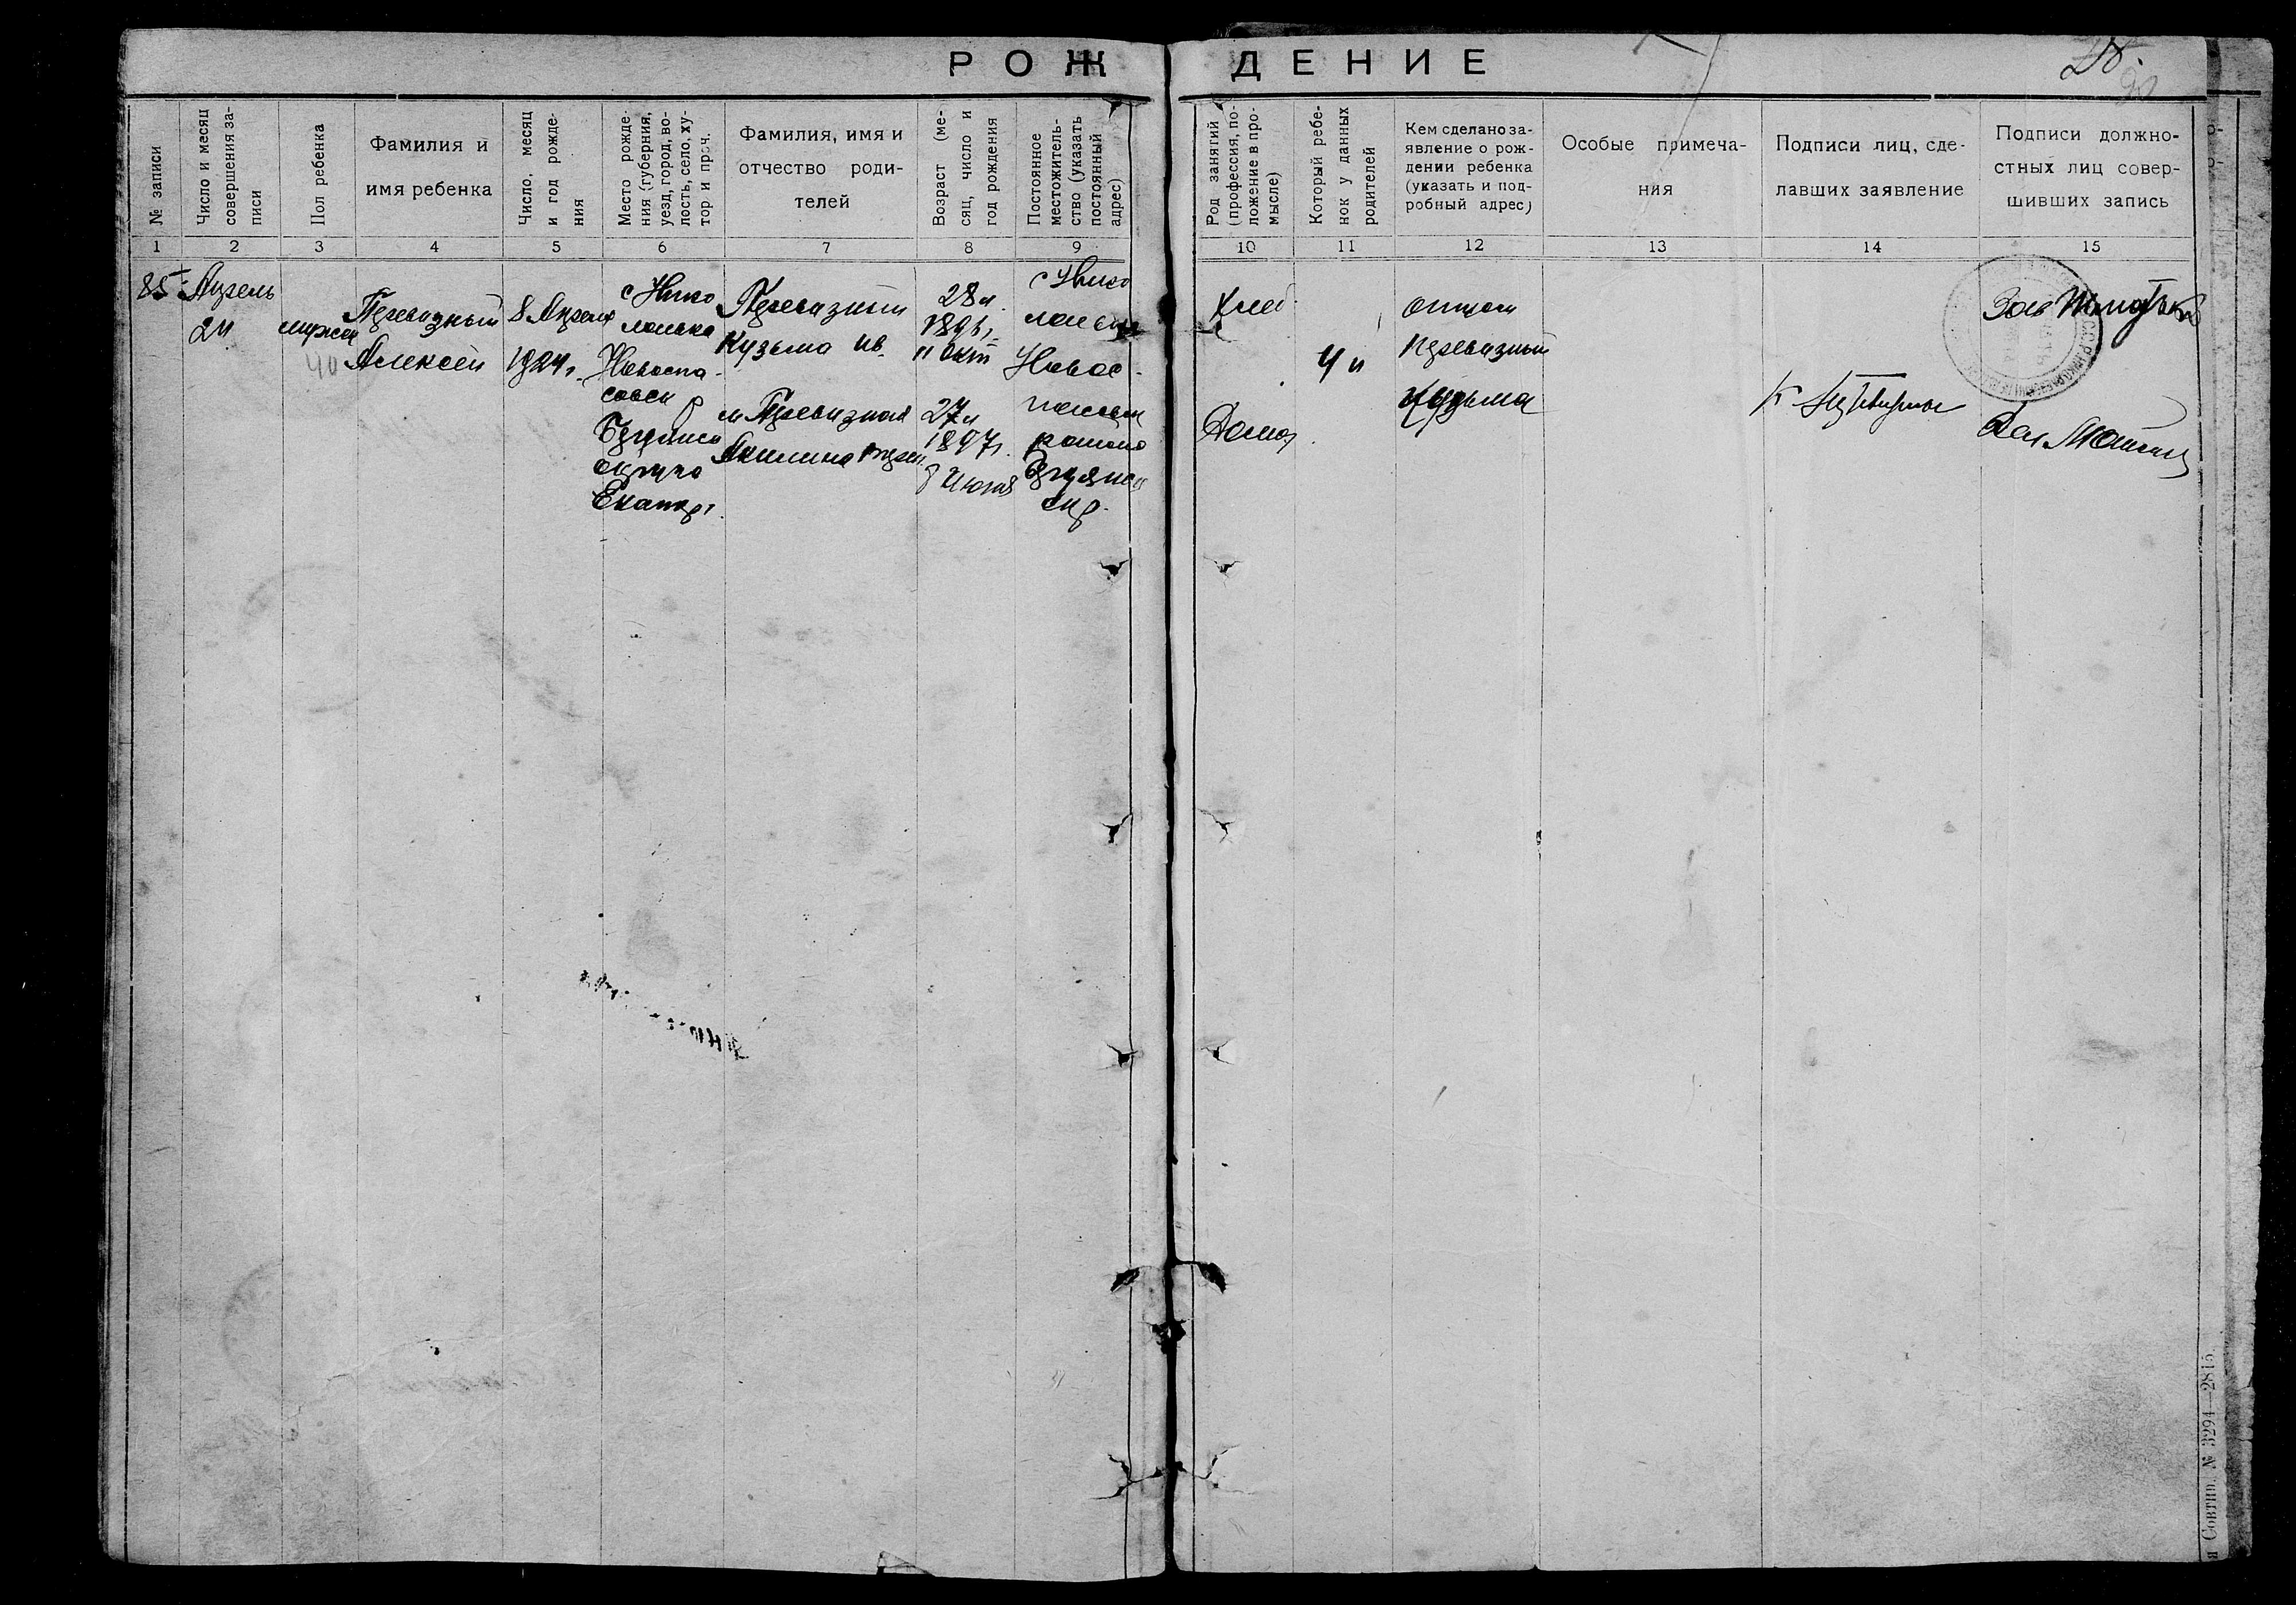 РОЖДЕНИЕ
28.
№ записи
Число и месяц
совершения за-
писи
Пол ребенка
Фамилия и
имя ребенка
Число, месяц
и год рожде-
ния
Место рожде-
ния (губерния,
уезд, город, во-
лость, село, ху-
тор и проч.
Фамилия, имя и
отчество роди-
телей
Возраст (ме-
сяц, число и
год рождения
Постоянное
местожитель-
ство (указать
постоянный
адрес)
Род занятий
(профессия, по-
ложение в про-
мысле)
Который ребе-
нок у данных
родителей
Кем сделано за-
явление о рож-
дении ребенка
(указать и под-
робный адрес)
Особые примеча-
ния
Подписи лиц, сде-
лавших заявление
Подписи должно-
стных лиц совер-
шивших запись
1 2 3 4 5 6 7 8 9 10 11 12 13 14 15
85
Апрель
24
мужск
40
Перевизный
Алексей
8 Апреля
1924 г.
с Нико
лаевка
Новоспа-
совск р
Бердянск
округа
Екатер.
Перевизный
Кузьма Ив.
м Перевизная
28 л
1896 г
11 Окт
27 л
1897 г.
8 Июня
с Нико
лаевка
Новос-
пасовск
района
Бердянск
окр.
Хлеб
Домох
4 й
отцом
Перевизный
Кузьма
К Перевизный
Зав
Дел
в Совтип. № 3294—2815.